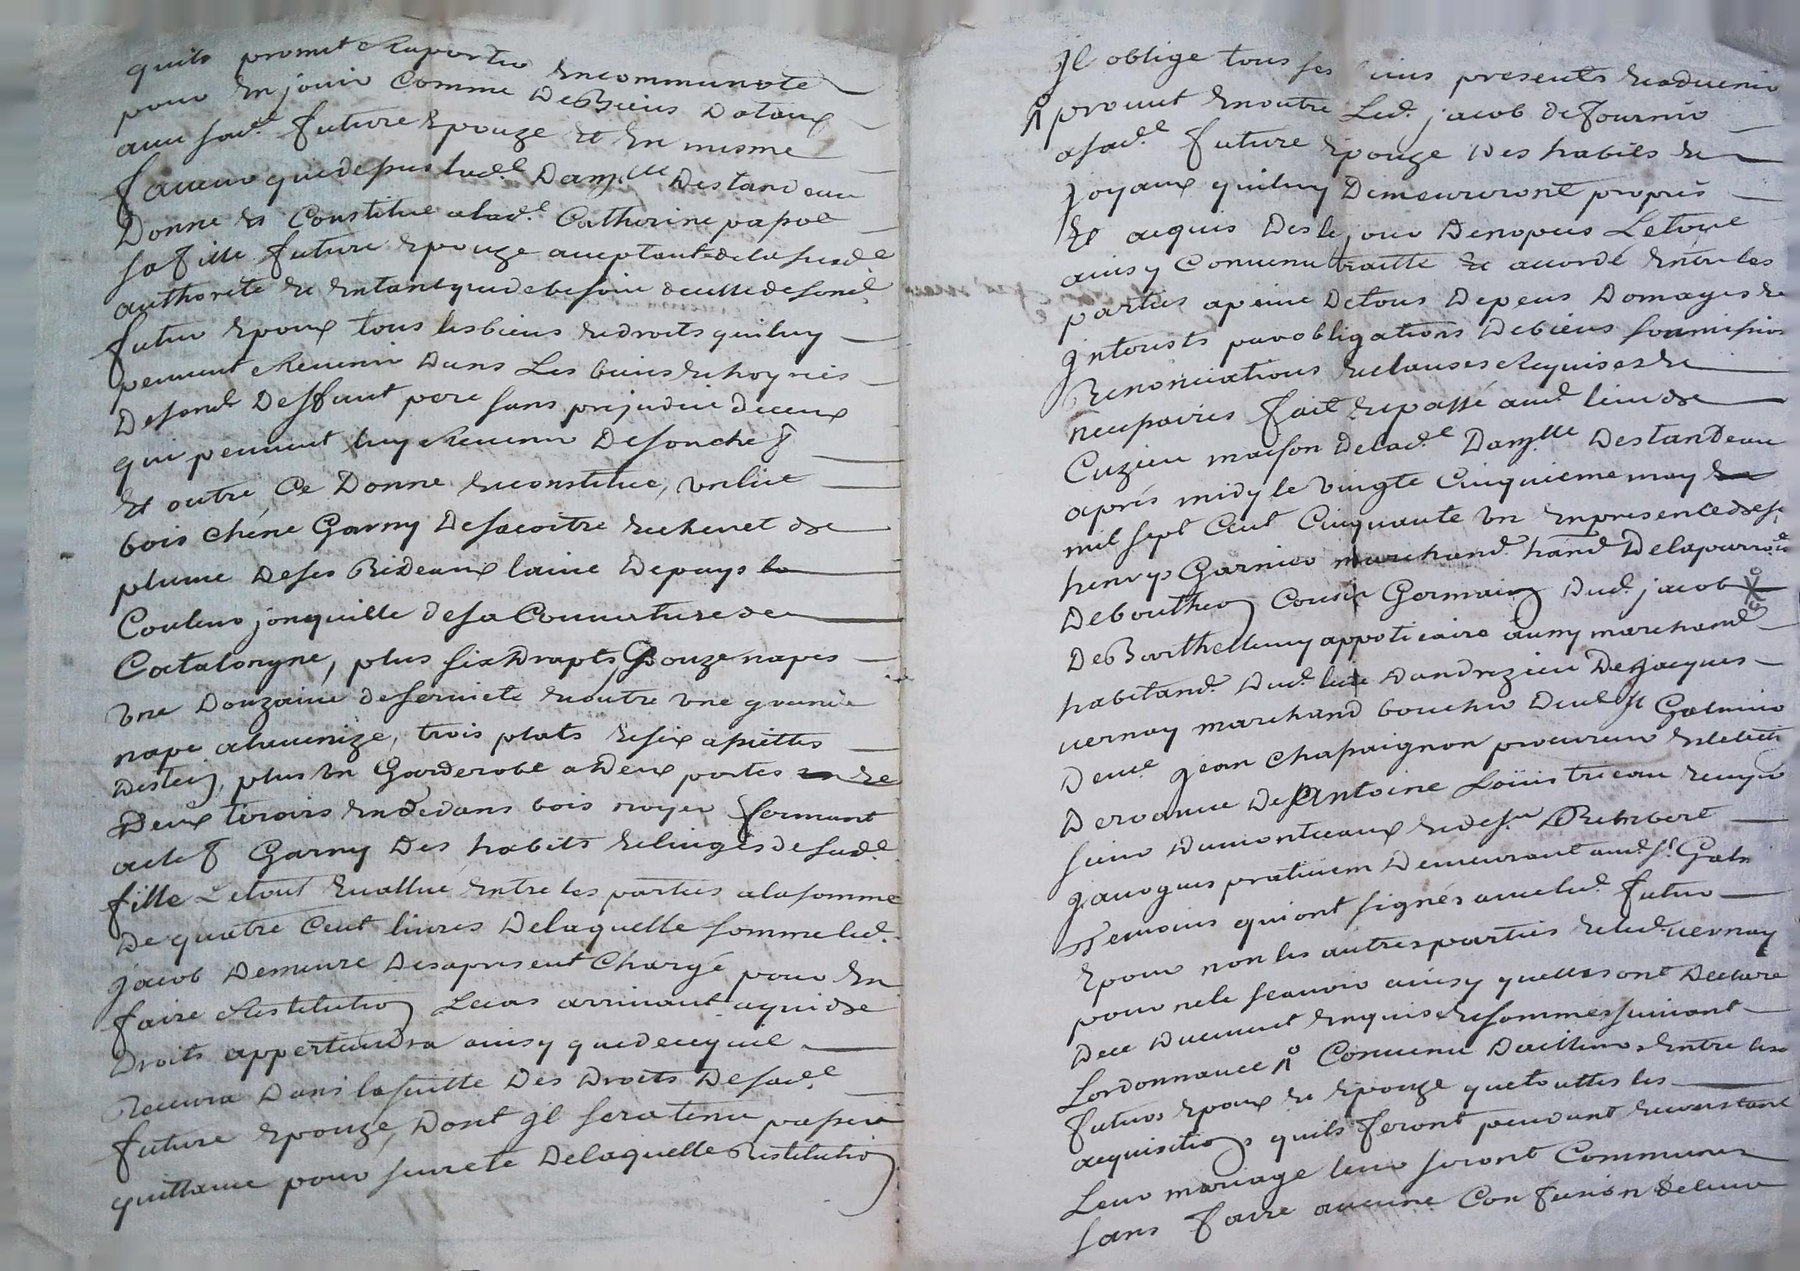 quils promet Raporter Encommunote
pour En jouir Comme DeBiens Dotaux
avec sad.e future Epouze Et En mesme
faveur que depuis lad.e Dam.lle Destandeau
Donne Et Constitue alad.e Catherine papol
sa fille future Epouze aceptante de la susd.e
authorité Et Entant que de besoin de celle desond.
futur Epoux tous les biens Et droits qui luy
peuvent Revenir Dans Les biens Et hoyries
Desond. Deffunt pere sans prejudice de ceux
qui peuvent luy Revenir De son chef
Et outre Ce Donne Et constitue, un lict
bois chêne Garny De sa coitre Et chevet de
plume De ses Rideaux laine Depays
Couleur jonquille de sa Couverture de
Catalongne, plus six Draps Douze napes
Une Douzaine de serviete Et outre une grande
nape , trois plats Et six assiettes
Destein, plus un Garderobe a Deux portes Et
Deux tiroirs En dedans bois noyer fermant
a clef Garny Des habits Et linges de sad.e
fille Le tout Evallué Entre les parties a la somme
De quatre Cent livres De laquelle somme led.
jacob Demeure Des apresent Chargé pour En
faire Restitution Le cas arrivant a qui de
Droits appertiendra ainsy que de ce qu'il
Recevra Dans la suitte Des Droits De sad.e
future Epouze, Dont Il sera tenu passer
quittance pour sureté De laquelle Restitution
Il oblige tous ses biens presents Et advenir
promet En outre Led. jacob De fournir
a sad.e future Epouze Des habits Et
joyaux qui luy Demeureront propres
Et acquis Des le jour De nopces Le tout
ainsy Convenu traitté Et accordé Entre les
parties a peine De tous Depens Domages Et
Interests par obligations De biens soumissions
Renonciations Et clauses Requises Et
necessaires fait Et passé aud. lieu de
Cuzieu maison De lad.e Dam.lle Destandeau
aprés midy le vingte Cinquieme may
mil sept Cent Cinquante un En presence de s.r
henry Garnier marchand hand. De la parroisse
De Boutheon Cousin Germain Dud. jacob
De Barthellemy appoticaire marchand
habitand. Dud. lieu Dandrezieu De jacques
vernay marchand boucher De S.t Galmier
jean Chapaignon procureur
De s.r Antoine Loüis trieau
sieur Dumonteaux Et de s.r Rimbert
javogues praticien Demeurant aud. S.t Galm.
Temoins qui ont signés avec led. futur
Epoux non les autres parties Et led. vernay
pour ne le scavoir ainsy quelles ont Declaré
De ce Duement Enquis Et sommés suivant
Lordonnance Convenu Dailleurs Entre les
futurs Epoux Et Epouze que touttes les
acquisitions quils feront pendant Et constant
Leur mariage leur seront Communes
sans faire aucune Confusion de leur